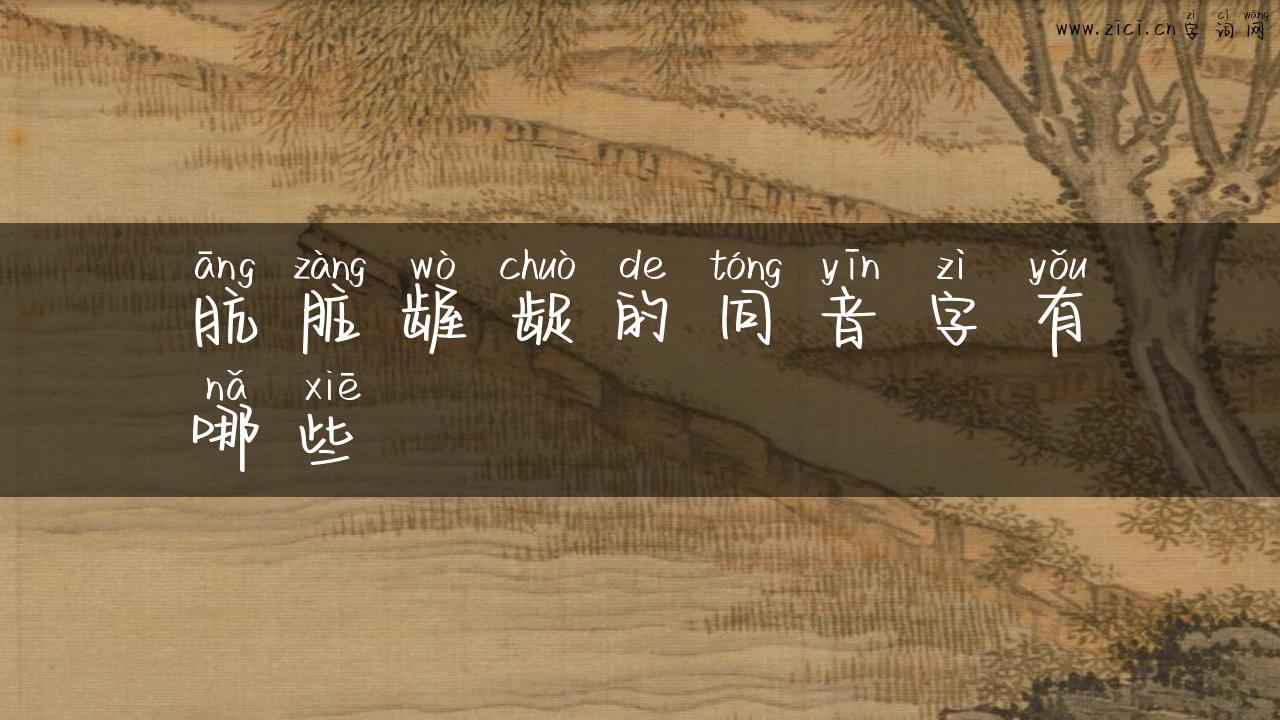 zì cí wǎng
www.zici.cn 字 词 网
āng zàng wò chuò de tóng yīn zì yǒu
肮 脏 龌 龊 的 同 音 字 有
nǎ xiē
哪 些